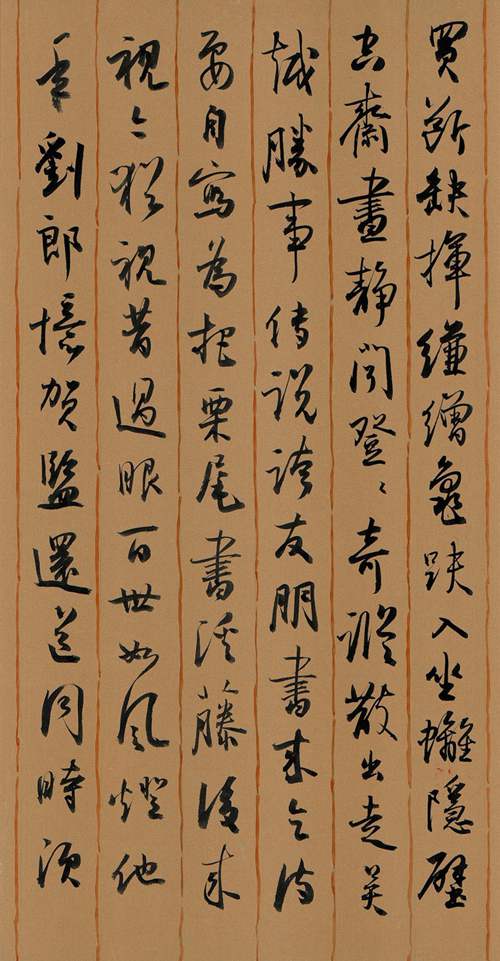 買斷缺揮縑繒龜趺入坐螭隱壁
空齋晝靜聞登〻奇蹤散出走吴
越勝事傳説誇友朋書來乞詩
要自寫為把栗尾書溪藤後來
視今猶視昔過眼百世如風燈他
年劉郎憶賀監還道同時須